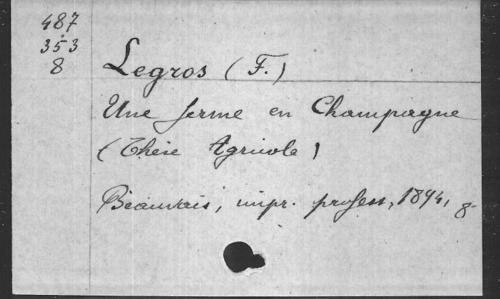 487
353
8
Legros (F.)
Une ferme en Champagne
(Thèse Agricole)
Beauvais, impr. profess, 1894, 8°